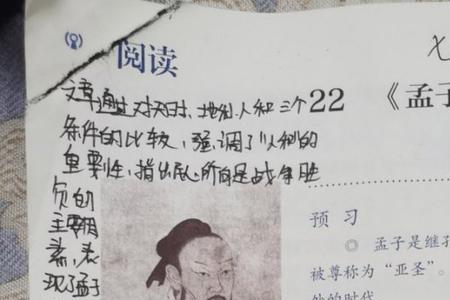 阅读
七
22 《孟子
文章通过对天时、地利、人和三个
条件的比较,强调了"人和"的
重要性,指出民心所向是战争胜
负的
主要因
素,表
现了孟子
预 习
◎ 孟子是继孔
被尊称为“亚圣”。
他的时代